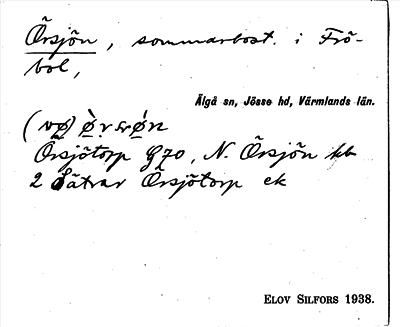 Örsjön, sommarbost. i Frö-
bol,
Älgå sn, Jösse hd, Värmlands län.
Örsjötorp G70, N. Örsjön kb
2 Sätrar Örsjötorp ek
ELOV SILFORS 1938.